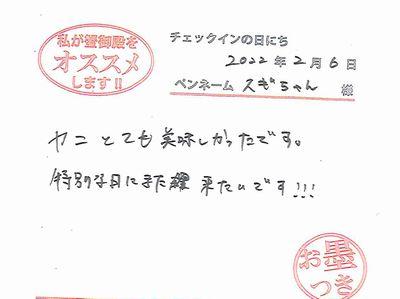 私が蟹御殿を
オススメ
します!!
チェックインの日にち
2022年2月6日
ペンネーム スギちゃん 様
カニとても美味しかったです。
特別な日にまた来たいです!!!
お墨
つき